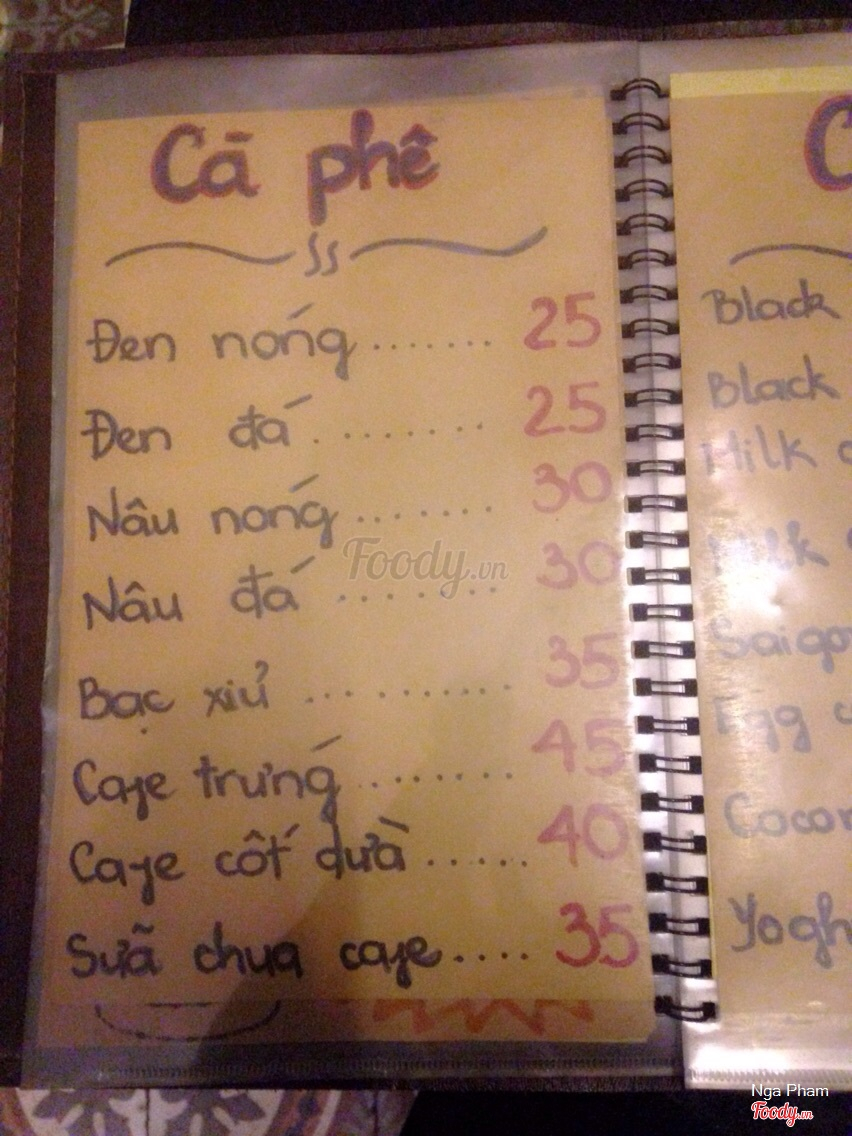 Cà phê
Đen nóng ........ 25
Đen đá ......... 25
Nâu nóng ........ 30
Nâu đá ......... 30
Bạc xỉu ............ 35
Cafe trứng ......... 45
Cafe cốt dừa ...... 40
Sữa chua cafe .... 35
Black
Black
Milk
Milk
Saigo
Egg c
Cocon
Yogh
Foody.vn
Nga Pham
Foody.vn